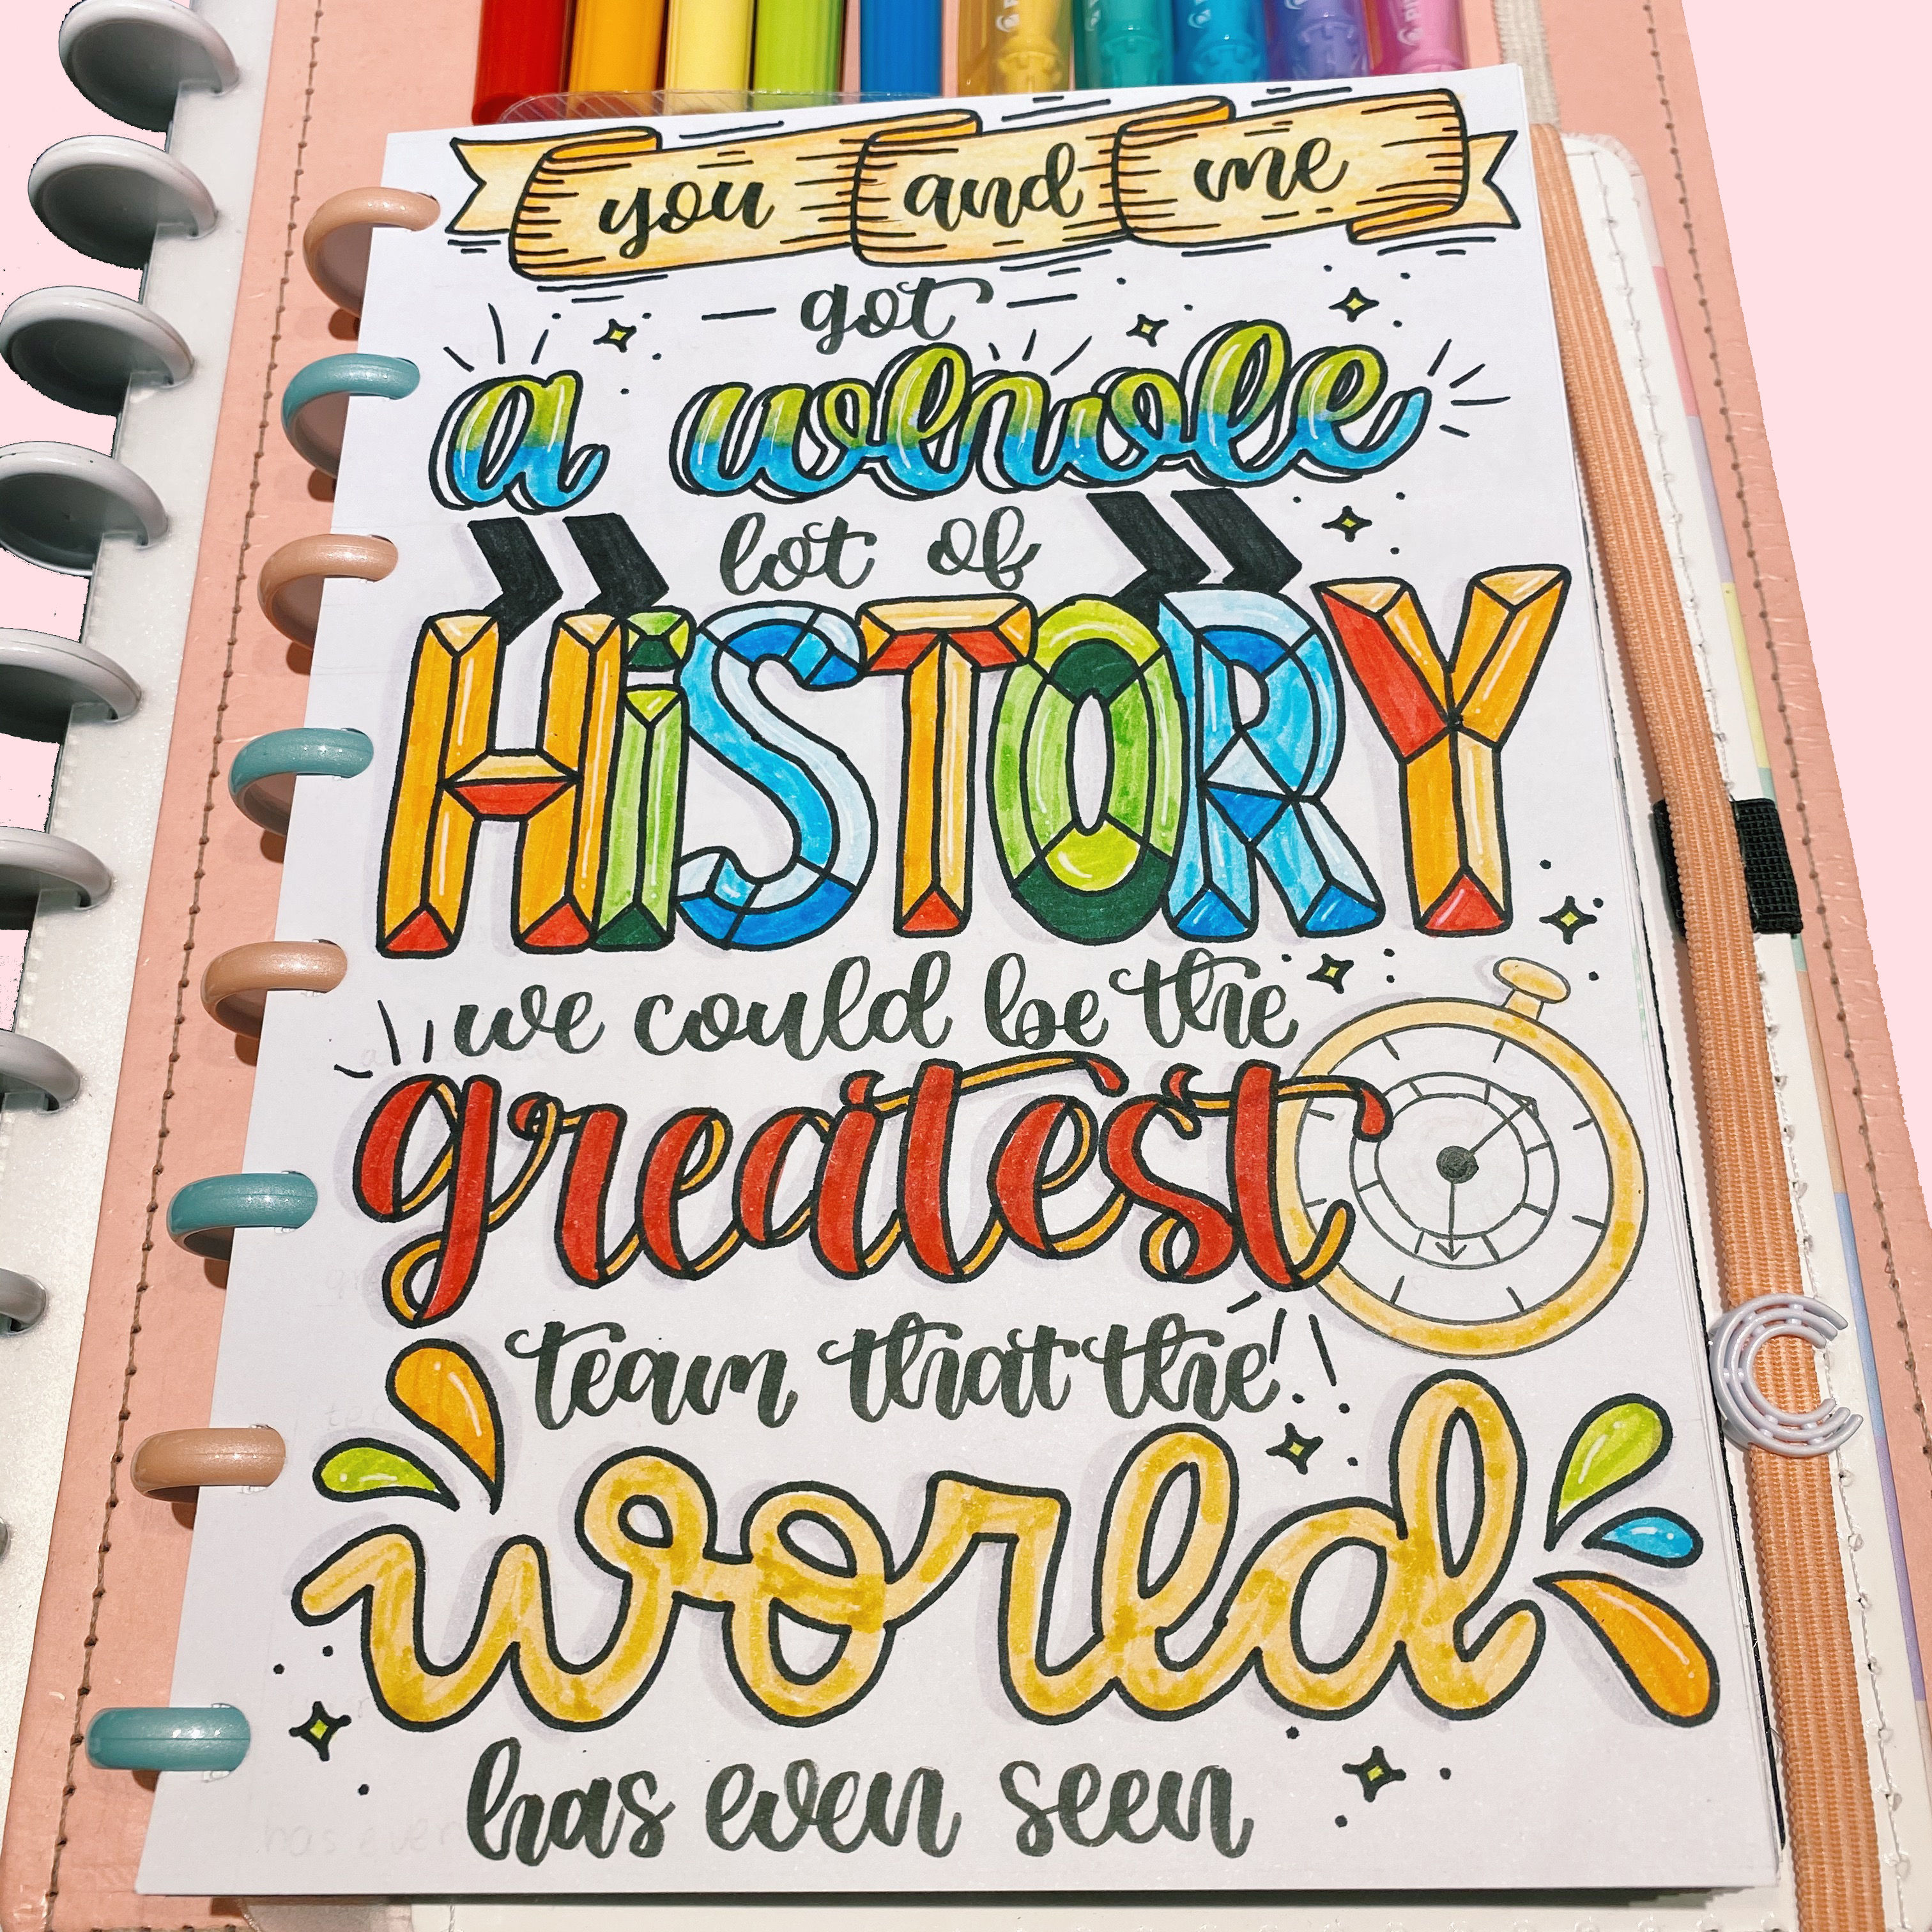 you and me
got
a whole
lot of
HiSTORY
we could be the
greatest
team that the
world
has even seen